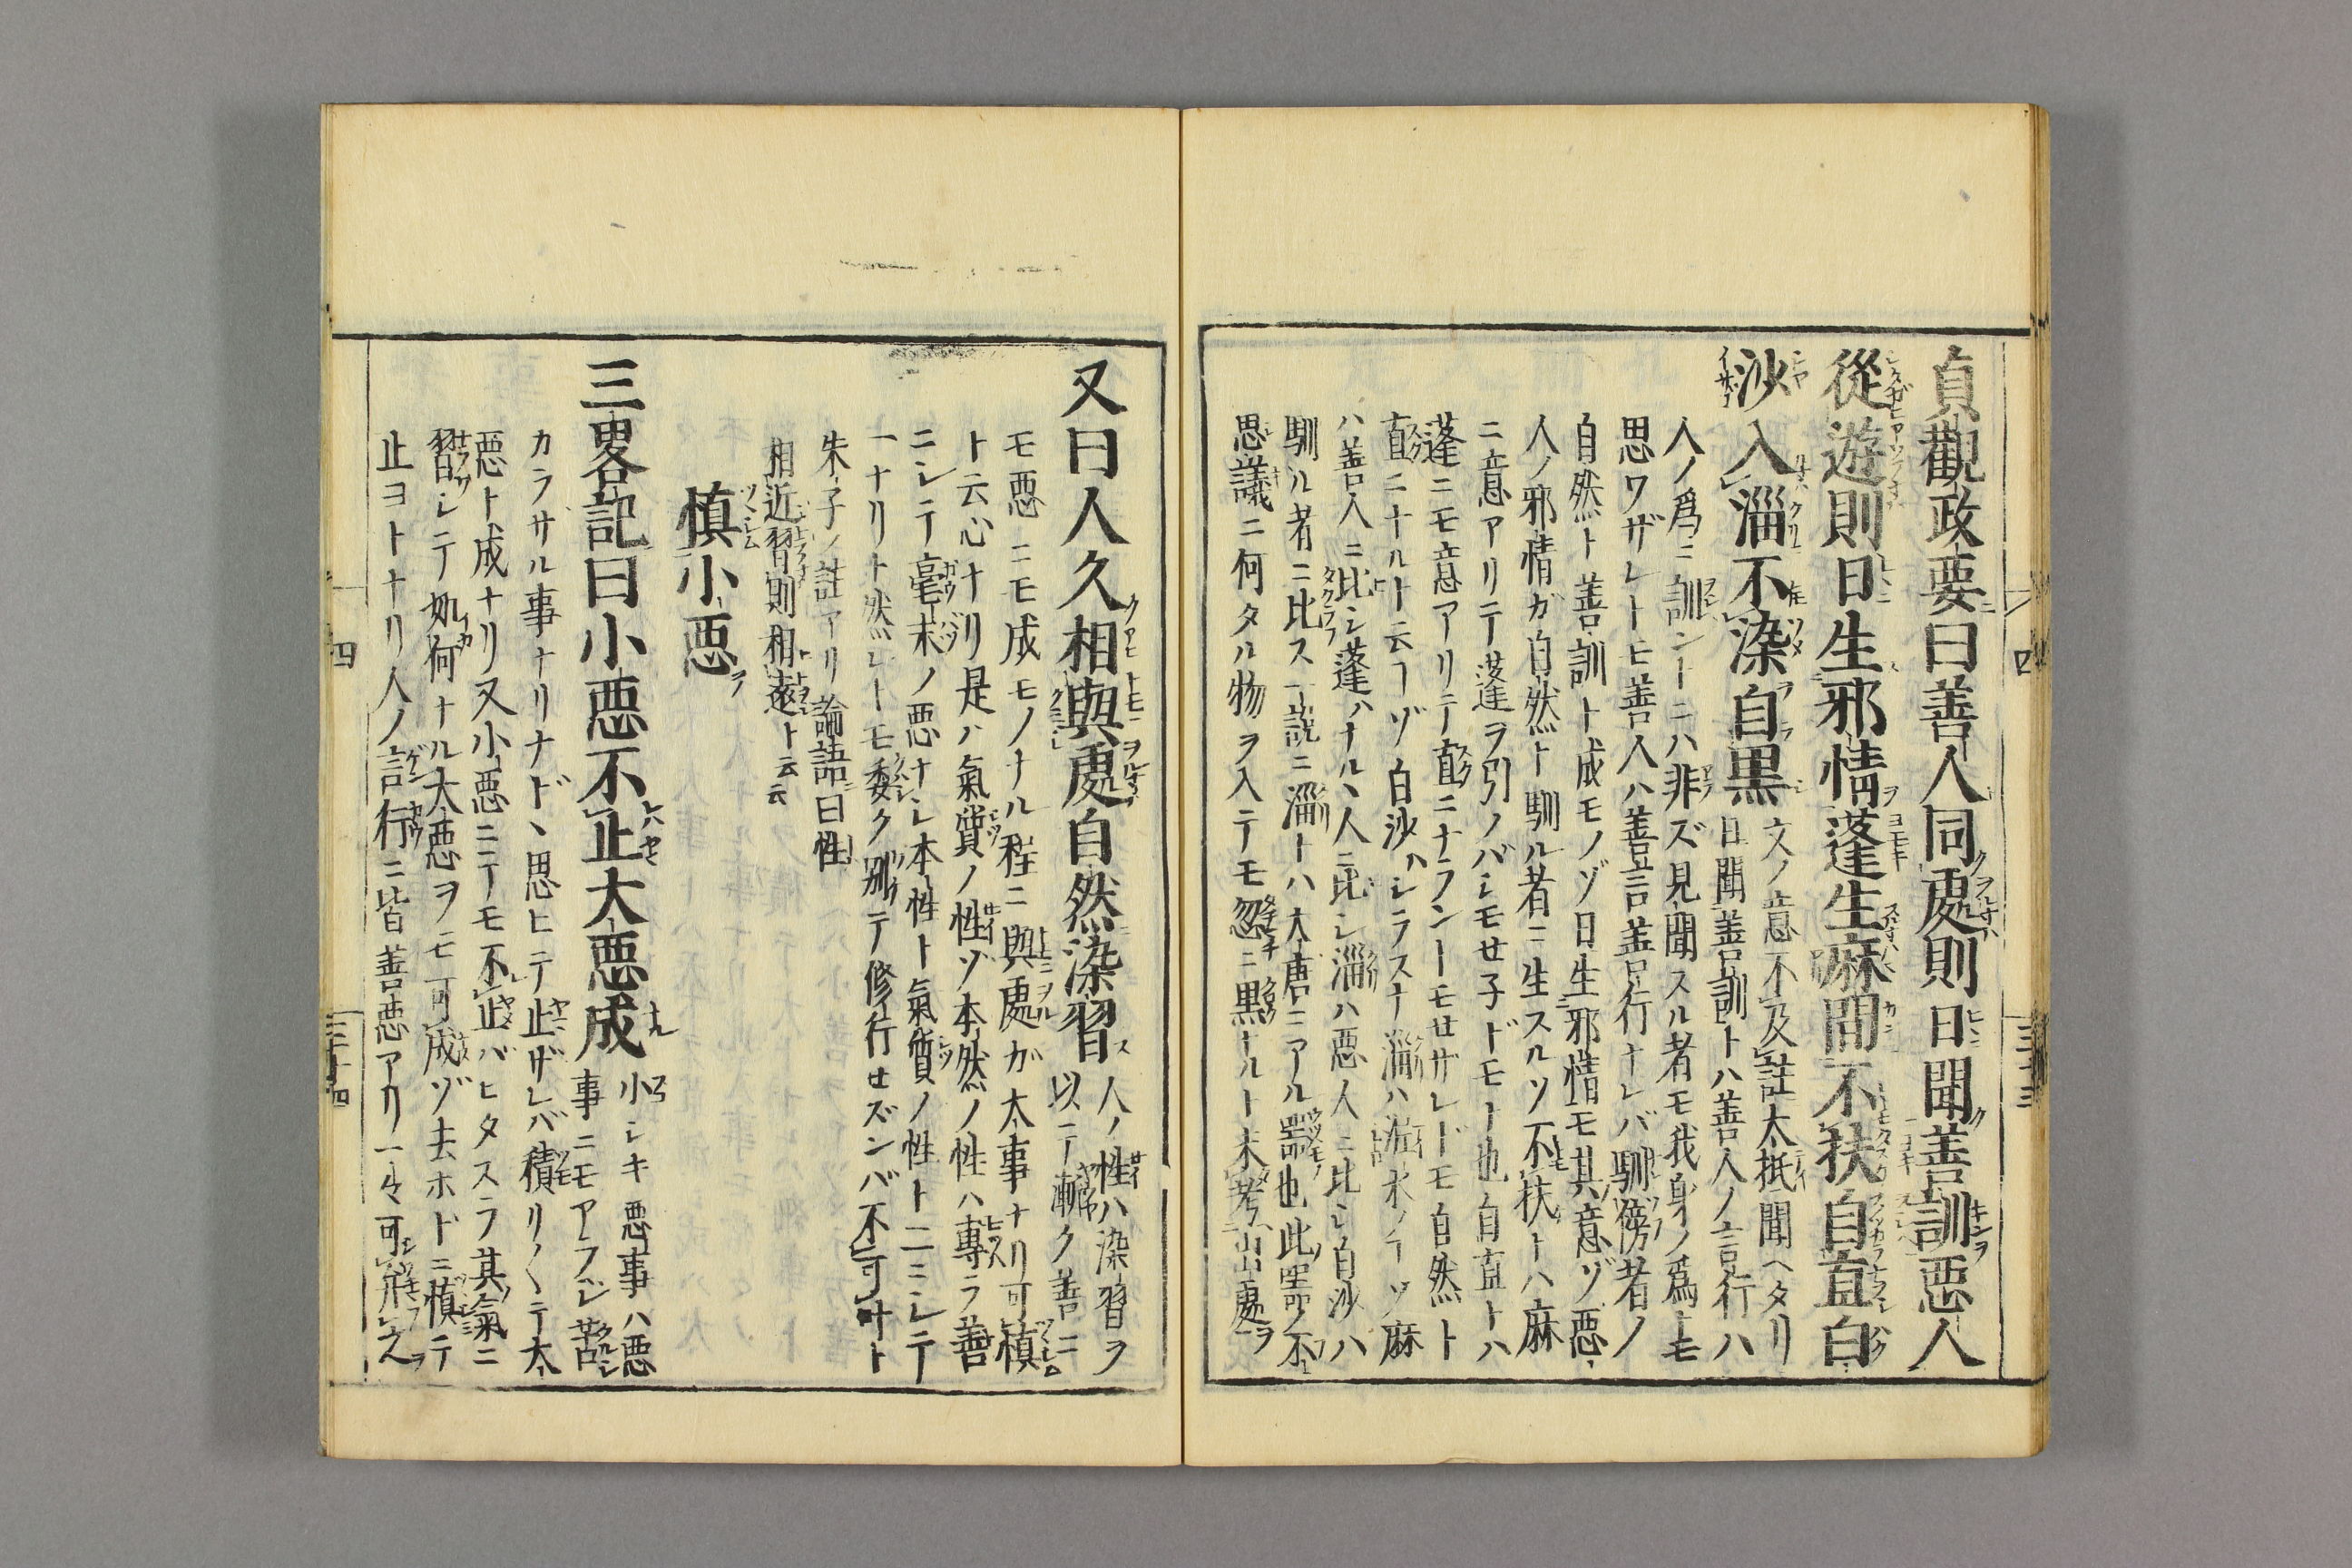 貞觀政要曰善人同處則日聞善訓惡人
從遊則日生邪情蓬生麻間不扶自直白
沙入淄不染自黒
文ノ意不及註大抵聞ヘタリ
日聞善訓トハ善人ノ言行ハ
人ノ爲ニ訓ントニハ非ズ見聞スル者モ我身ノ爲トモ
思ワザレトモ善人ハ善言善行ナレバ馴傍者ノ
自然ト善訓ト成モノゾ日生邪情モ其意ゾ悪
人ノ邪情ガ自然ト馴ル者ニ生スルソ不扶トハ麻
ニ意アリテ蓬ヲ引ノバシモせ子ドモト也自直トハ
蓬ニモ意アリテ直ニナラントモせザレドモ自然ト
直ニナルト云フゾ白沙ハシラスナ淄ハ
ハ善人ニ比シ蓬ハナル人ニ比シ淄ハ悪人ニ比シ白沙ハ
馴ル者ニ比ス一説ニ淄トハ大唐ニアル器也此器ノ不
思議ニ何タル物ヲ入テモ忽ニ黒ナルト未考出處ヲ
四
三十三
又曰人久相與處自然染習
人ノ性ハ染習ヲ
以テ漸ク善ニ
モ悪ニモ成モノナル程ニ與處ガ太事ナリ可慎
ト云心ナリ是ハ氣質ノ性ゾ本然ノ性ハ專ラ善
ニシテ毫末ノ悪ナシ本性ト氣質ノ性ト二ニシテ
一ナリト然レトモ委ク別テ修行せズンバ不可叶ト
朱子ノ註アリ論語曰性
相近習則相遠ト云云
慎小悪
三畧記曰小悪不止大悪成
小シキ悪事ハ悪
事ニモアラレ苦
カラサル事ナリナド思ヒテ止ザレバ積リ〱テ大
悪ト成ナリ又小悪ニテモ不止バヒタスラ其氣ニ
習レテ如何ナル大悪ヲモ可成ゾ去ホドニ慎テ
止ヨトナリ人ノ言行ニ皆善悪アリ一々可辨之
四
三十四